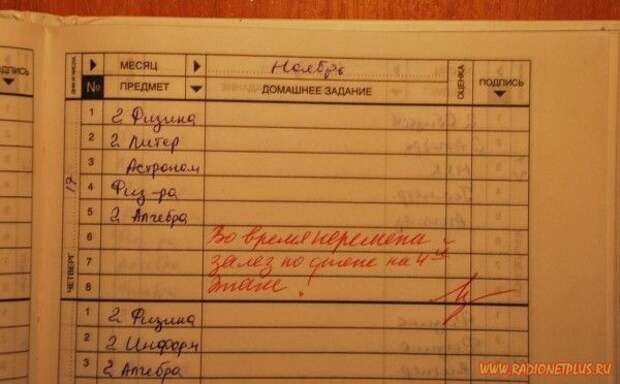 ОДПИСЬ
ДНИ И ЧИСЛА
МЕСЯЦ Ноябрь ОЦЕНКА
№ ПРЕДМЕТ ДОМАШНЕЕ ЗАДАНИЕ ПОДПИСЬ
ЧЕТВЕРГ 17
1 2 Физика
2 2 Литер
3 Астроном
4 Физ-ра
5 2 Алгебра
6 Во время перемены
7 залез по стене на 4ый
8 этаж.
1 2 Физика
2 2 Информ
3 2 Алгебра
WWW.RADIONETPLUS.RU